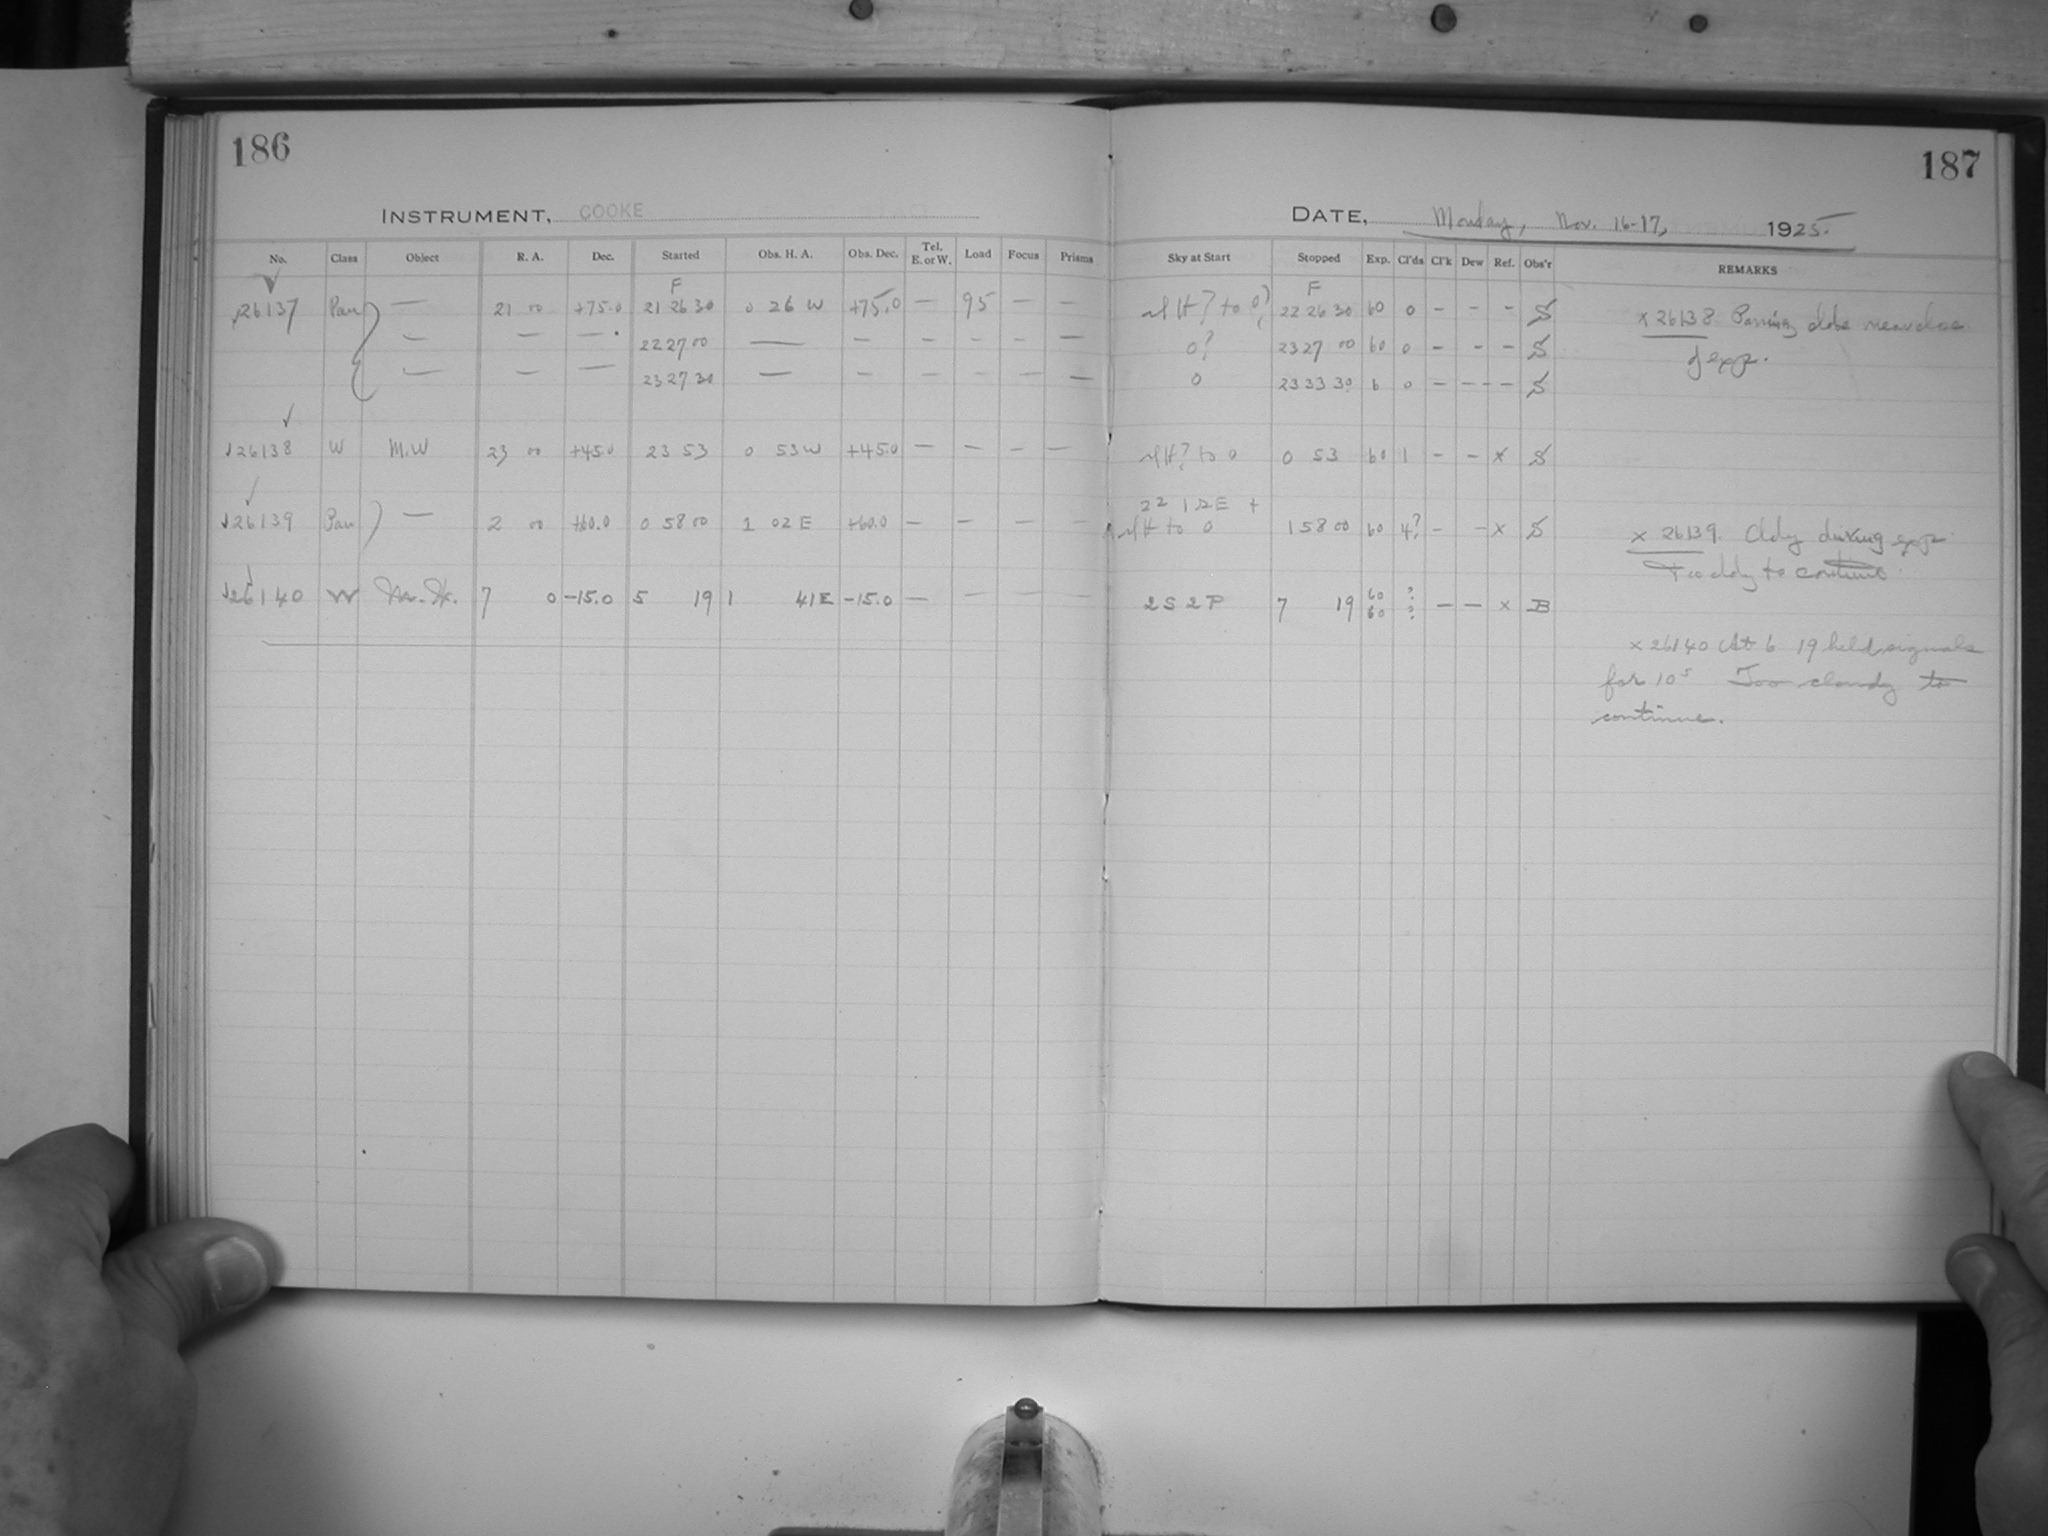 186
187
INSTRUMENT, COOKE
DATE, Monday, Nov. 16-17, 1925.
No. Class Object R. A. Dec. Started Obs. H. A. Obs. Dec. Tel. E. or W. Load Focus Prisms Sky at Start Stopped Exp. Cl'ds Cl'k Dew Ref. Obs'r REMARKS
F F
26137 Pan — 21 00 +75.0 21 26 30 0 26 W +75.0 — 95 — — to 0? 22 26 30 60 0 - - - S x 26138 Passing clds near close
— — — 22 27 00 — — — — — — 0? 23 27 00 60 0 - - - S of exp.
— — — 23 27 30 — — — — — — 0 23 33 30 6 0 - - - - S
26138 W M.W 23 00 +45.0 23 53 0 53 W +45.0 — — — — to 0 0 53 60 1 - - x S
26139 Pan — 2 00 +60.0 0 58 00 1 02 E +60.0 — — — — to 0 1 58 00 60 4? - - x S x 26139. Cldy during exp
Too cldy to continue.
26140 W 7 0 -15.0 5 19 1 41 E -15.0 — — — — 2 S 2 P 7 19 60 60 ? ? — — x B
x 26140 At 6 19 held signals
for 10s Too cloudy to
continue.